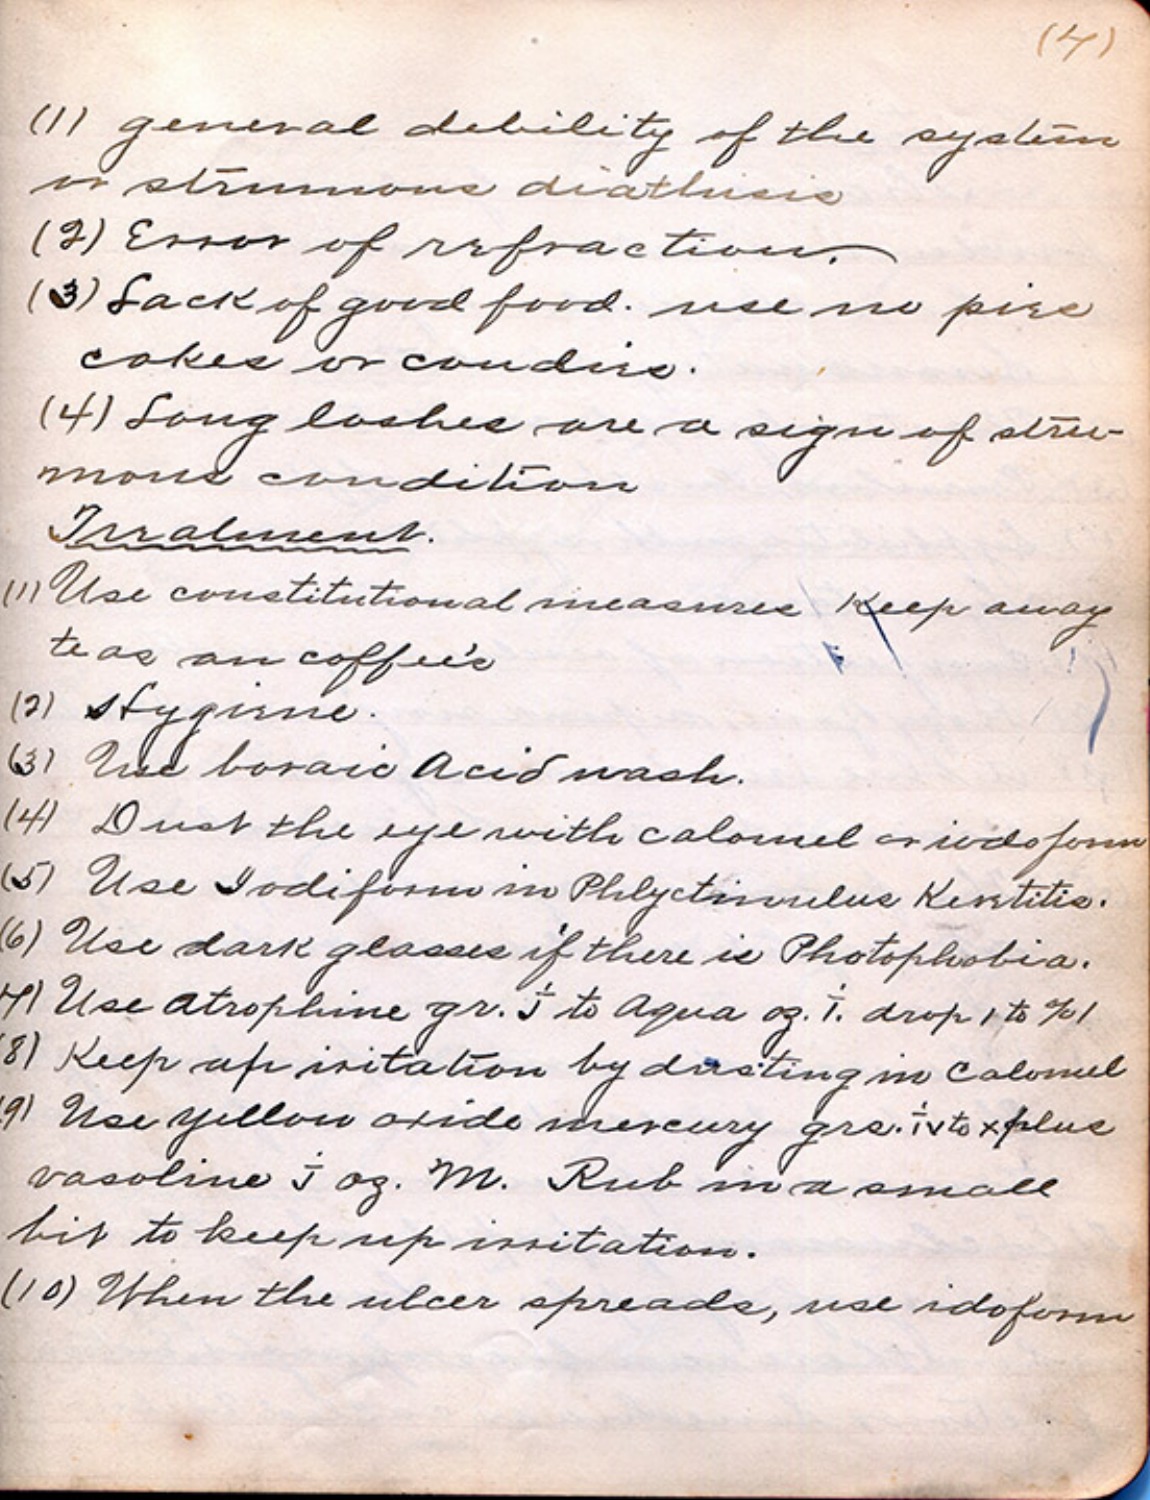 (4)
(1) general debility of the system
or strumous diathisis
(2) Error of refraction.
(3) Lack of good food. use no pies
cakes or candies.
(4) Long lashes are a sign of stru-
mous condition
Treatment.
(1) Use constitutional measures Keep away
teas an coffee's
(2) Hygiene.
(3) Use boraic Acid wash.
(4) Dust the eye with calomel or iodoform
(5) Use Iodiform in Phlyctinulus Keretitis.
(6) Use dark glasses if there is Photophobia.
7) Use Atrophine gr. i to Aqua oz. i. drop 1 to
(8) Keep up iritation by dusting in Calomel
(9) Use Yellow oxide mercury grs. iv to x plus
vasoline i oz. M. Rub in a small
bit to keep up irritation.
(10) When the ulcer spreads, use idoform